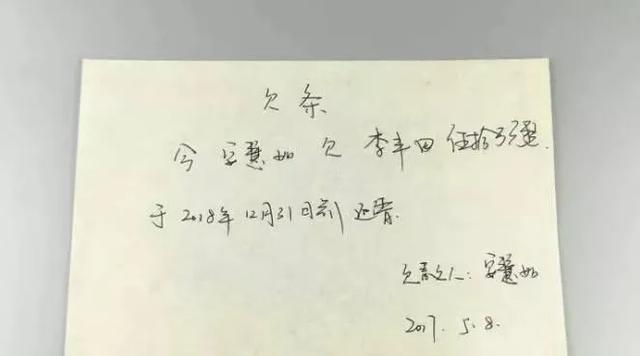 欠条
今 安慧如 欠 李丰田 伍拾万整.
于 2018年12月31日前还清.
欠款人: 安慧如
2017. 5. 8.